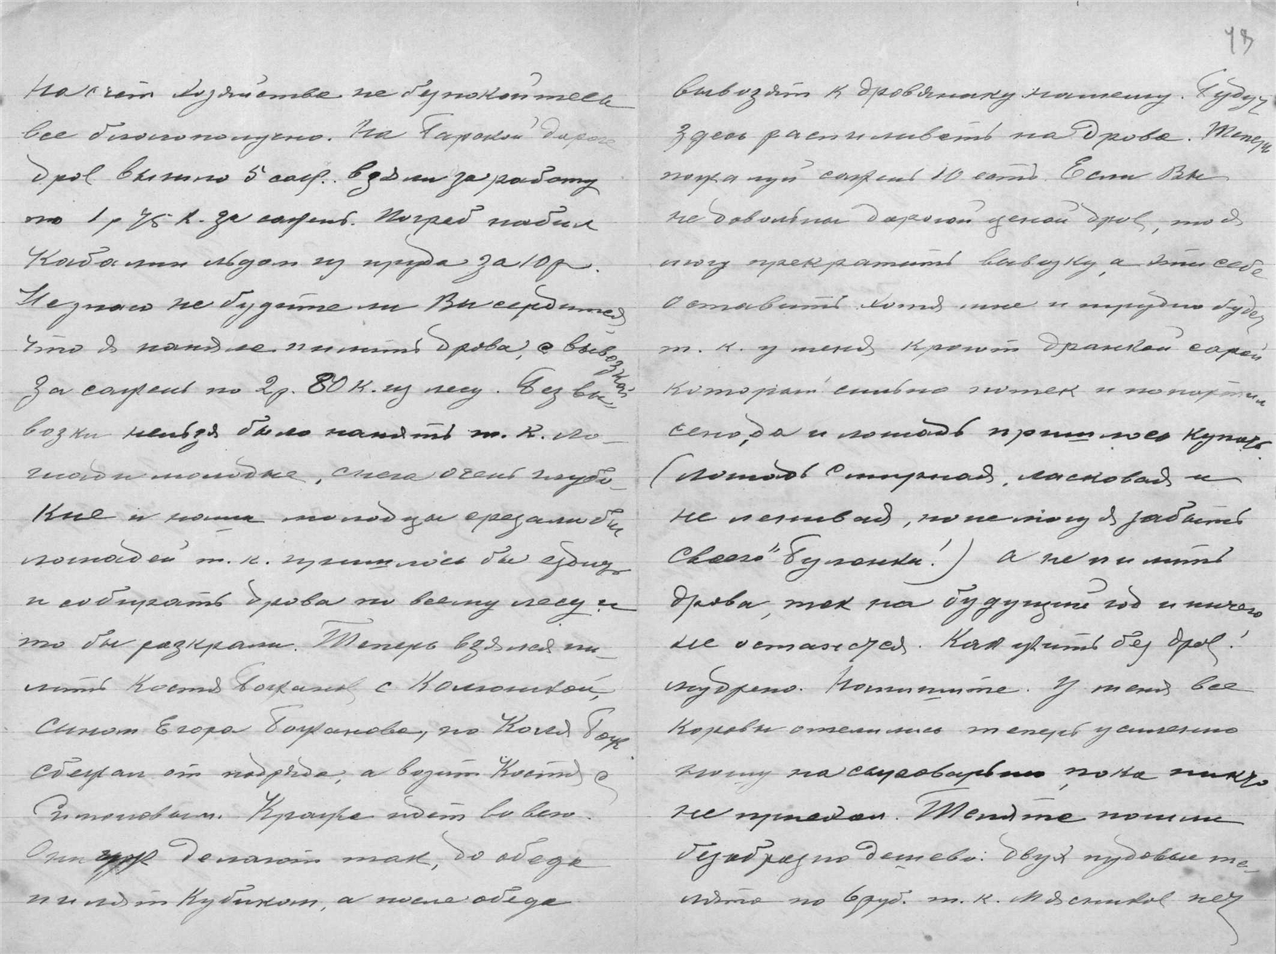 На счет хозяйства не бупокойтесь
все благополучно. На Гарской дороге
дров вышло 5 саж. взяли за работу
по 1 р 75 к. за сажень. Погреб набил
Кабалин льдом из пруда за 10 р.
Не знаю не будете ли Вы сердится,
что я наняла пилить дрова, с вывозкой
за сажень по 2 р. 80 к. из лесу. Без вы-
возки нельзя было нанять т. к. ло-
шади молодые, снега очень глубо-
кие и наши молодцы срезали бы
лошадей т. к. пришлось бы ездить
и собирать дрова по всему лесу и
то бы разкрали. Теперь взялся пи-
лить Костя Бажанов с Колюшкой,
сыном Егора Бажанова, но Коля Баж
сбежал от подряда, а возит Костя с
Симоновым. Кража идет во всю.
Они делают так, до обеда
пилят кубиком, а после обеда
73
вывозят к дровянику нашему. Будут
здесь распиливать на дрова. Теперь
пожалуй сажень 10 есть. Если Вы
не довольны дорогой ценой дров, то я
могу прекратить вывозку, а эти себе
оставить хотя мне и трудно будет
т. к. у меня кроют дранкой сарай
который сильно потек и попортил
сено, да и лошадь пришлось купить.
(лошадь смирная, ласковая и
не ленивая, но не могу я забыть
своего "Буланка"!) А не пилить
дрова, так на будущий год и ничего
не останется. Как жить без дров!
мудрено. Напишите. У меня все
коровы отелились теперь усиленно
ношу на сыроварню, пока никто
не приехал. Теляте пошли
безобразно дешево: двух пудовые те-
лята по 6 руб. т. к. мясников нет